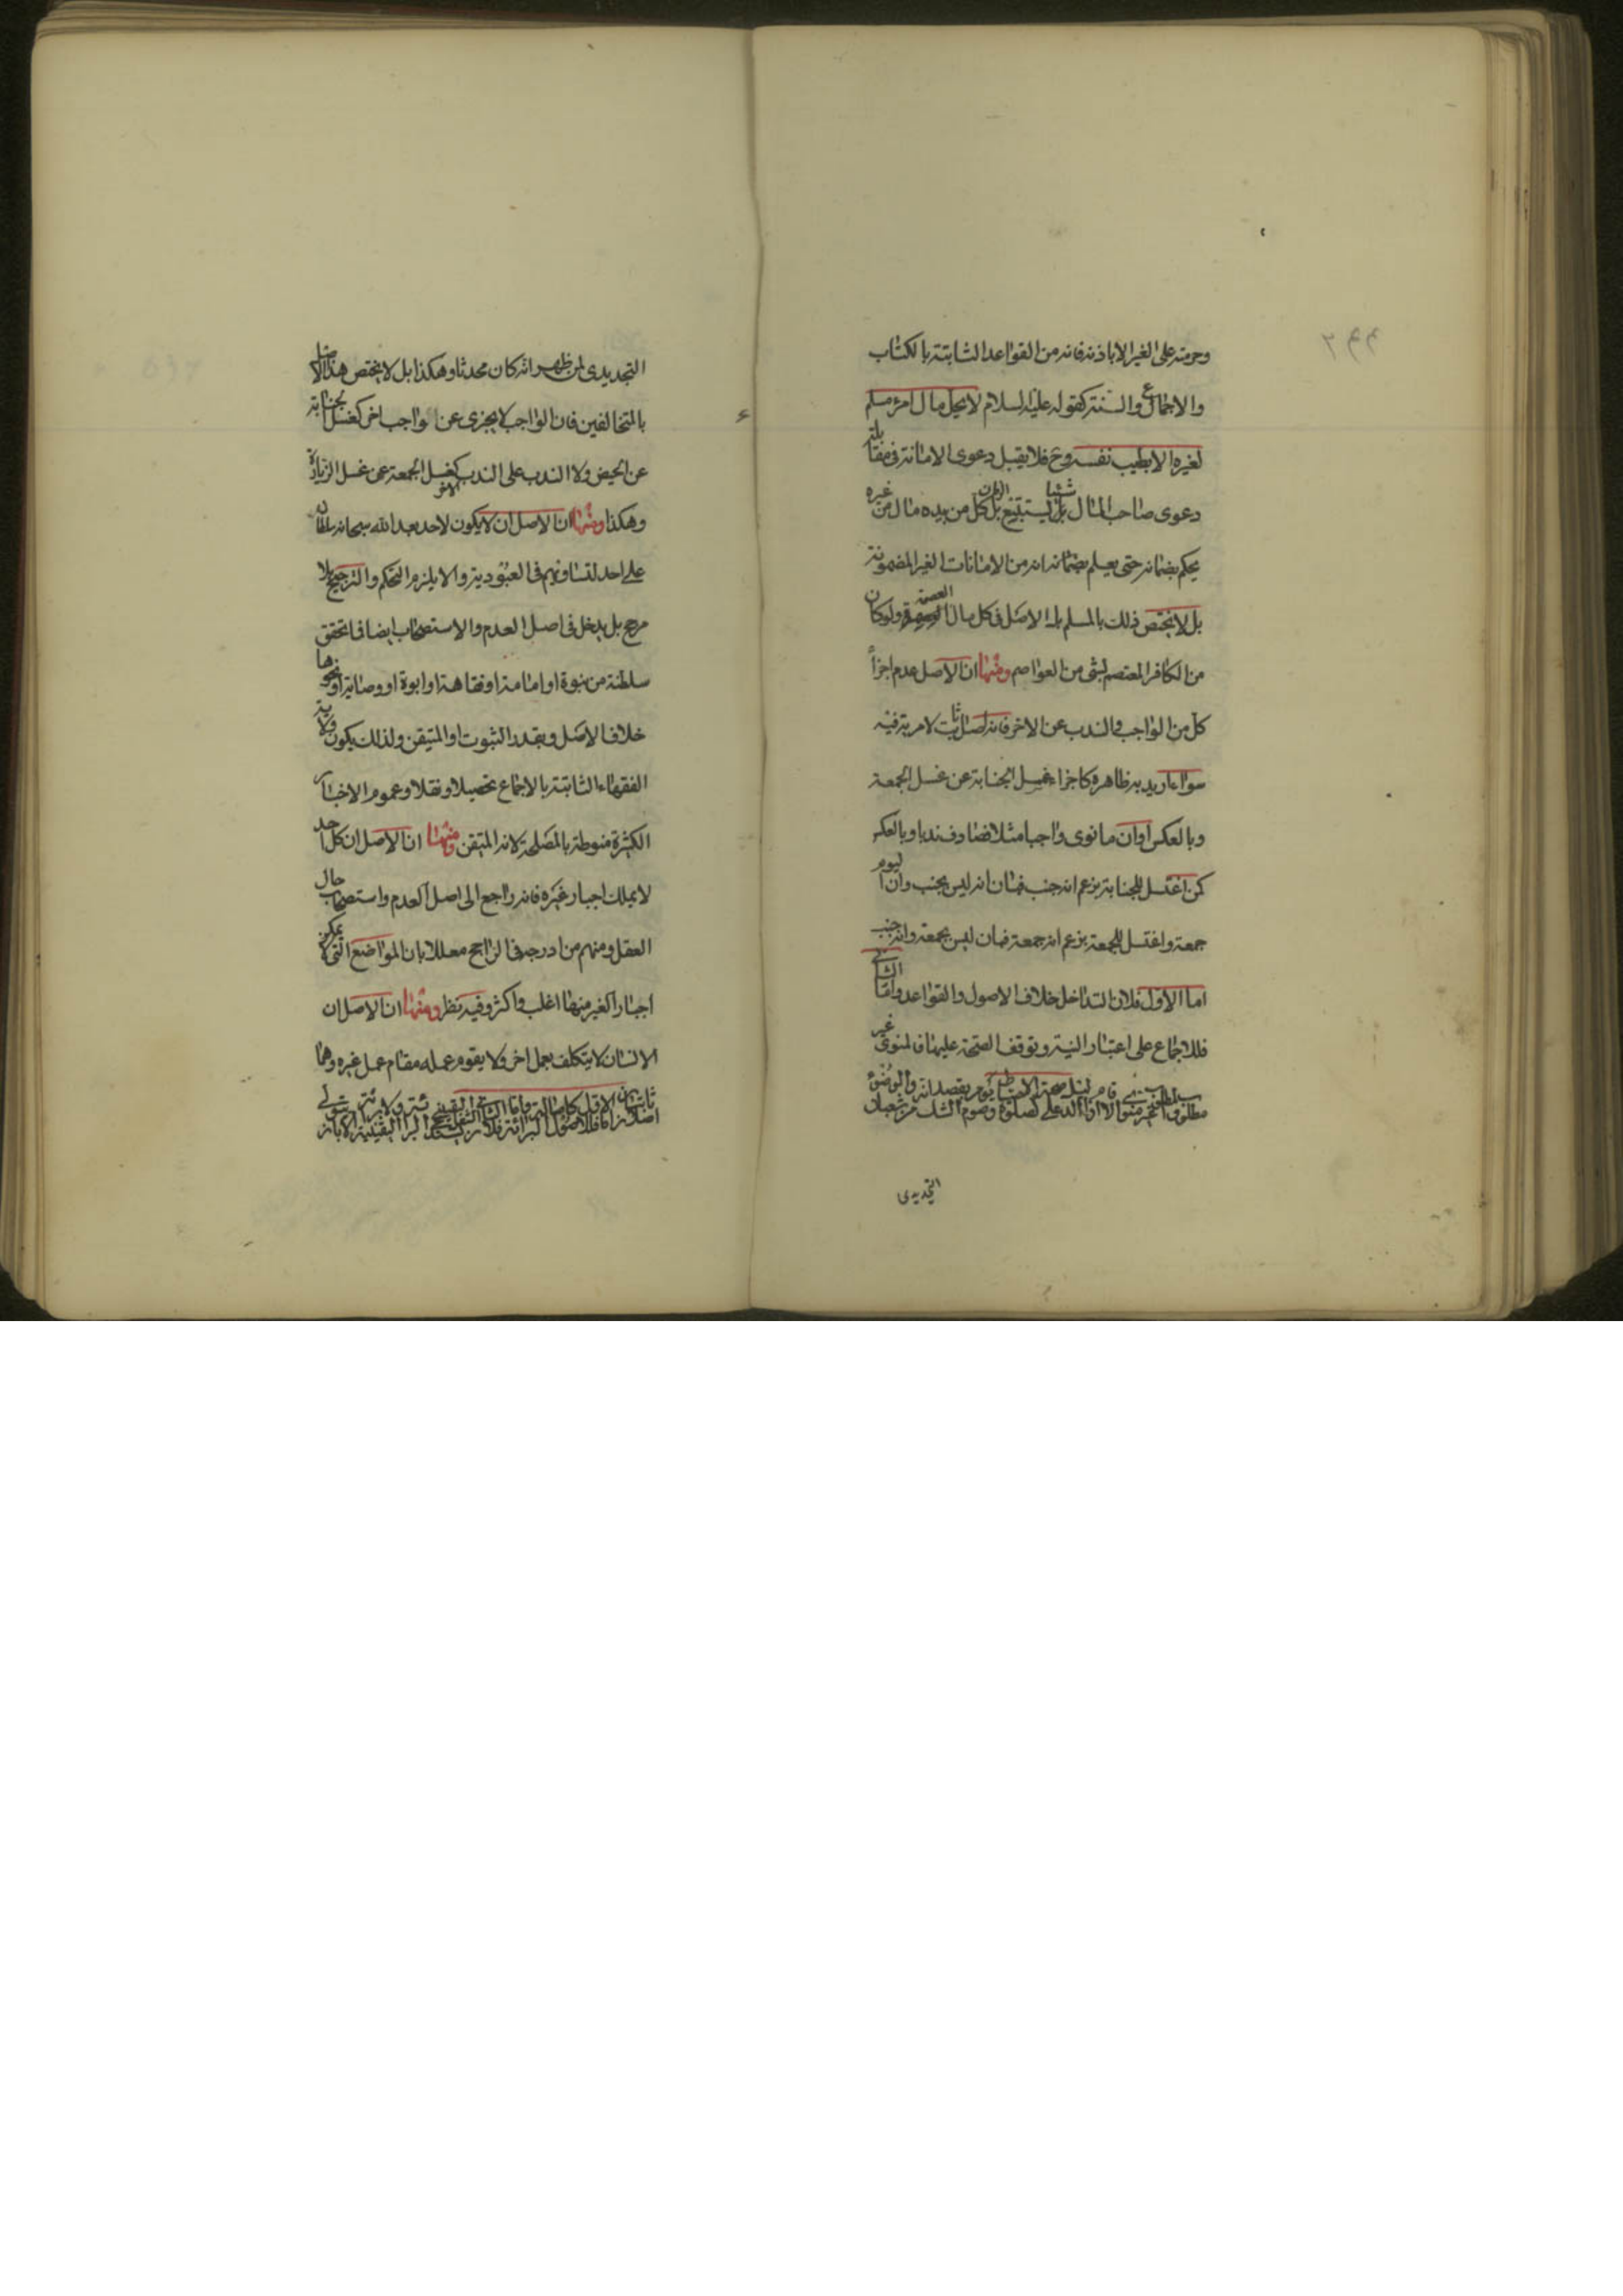 وحرمته على الغير الا باذنه فانه من القواعد الثابتة بالكتاب
والاجماع والسنة كقوله عليه السلام لا يحل مال امرء مسلم
لغيره الا بطيب نفسه وح فلا يقبل دعوى الامانة فى مقابلة
دعوى صاحب المال بل كل من بيده مال من غيره
يحكم بضمانه حتى يعلم انه من الامانات الغير المضمونة
بل لا يختص ذلك بالمسلم بل الاصل فى كل مال العصمة ولو كان
من الكافر المعتصم بشئ من العواصم ومنها ان الاصل عدم اجزاء
كل من الواجب والندب عن الاخر فانه اصل ثابت لا مرية فيه
سواء اريد به ظاهره كاجزاء غسل الجنابة عن غسل الجمعة
وبالعكس او ان ما نوى واجبا مثلا فصادف ندبا وبالعكس
كمن اغتسل للجنابة بزعم انه جنب فبان انه ليس بجنب وان اليوم
جمعة واغتسل للجمعة بزعم انه جمعة فبان ليس بجمعة وانه جنب
اما الاول فلان التداخل خلاف الاصول والقواعد واما الثانى
فللاجماع على اعتبار النية وتوقف الصحة عليها فالمنوى غير
مطلوب والمطلوب غير منوى الا ما قام الدليل على صحة
التجديدى
التجديدى لمن ظهر انه كان محدثا وهكذا بل لا يختص هذا الاصل
بالمتخالفين فان الواجب لا يجزى عن الواجب اخر كغسل الجنابة
عن الحيض ولا الندب على الندب الاخر كغسل الجمعة عن غسل الزيارة
وهكذا ومنها ان الاصل ان لا يكون لاحد بعد الله سبحانه سلطان
على احد لتساويهم فى العبودية والا يلزم التحكم والترجيح بلا
مرجح بل يدخل فى اصل العدم والاستصحاب ايضا فما تحقق
سلطنة من نبوة او امامة او فقاهة او ابوة او وصاية او نحوها
خلاف الاصل وبقدر الثبوت او المتيقن ولذلك يكون ولاية
الفقهاء الثابتة بالاجماع تحصيلا ونقلا وعموم الاخبار
الكثيرة منوطة بالمصلحة لانه المتيقن ومنها ان الاصل ان كل احد
لا يملك اجبار غيره فانه راجع الى اصل العدم واستصحاب حال
العقل ومنهم من ادرجه فى الراجح معللا بان المواضع التى لا يمكن
اجبار الغير منها اغلب واكثر وفيه نظر ومنها ان الاصل ان
الانسان لا يتكلف بعمل اخر ولا يقوم عمله مقام عمل غيره وهما
اصلان ثابتان